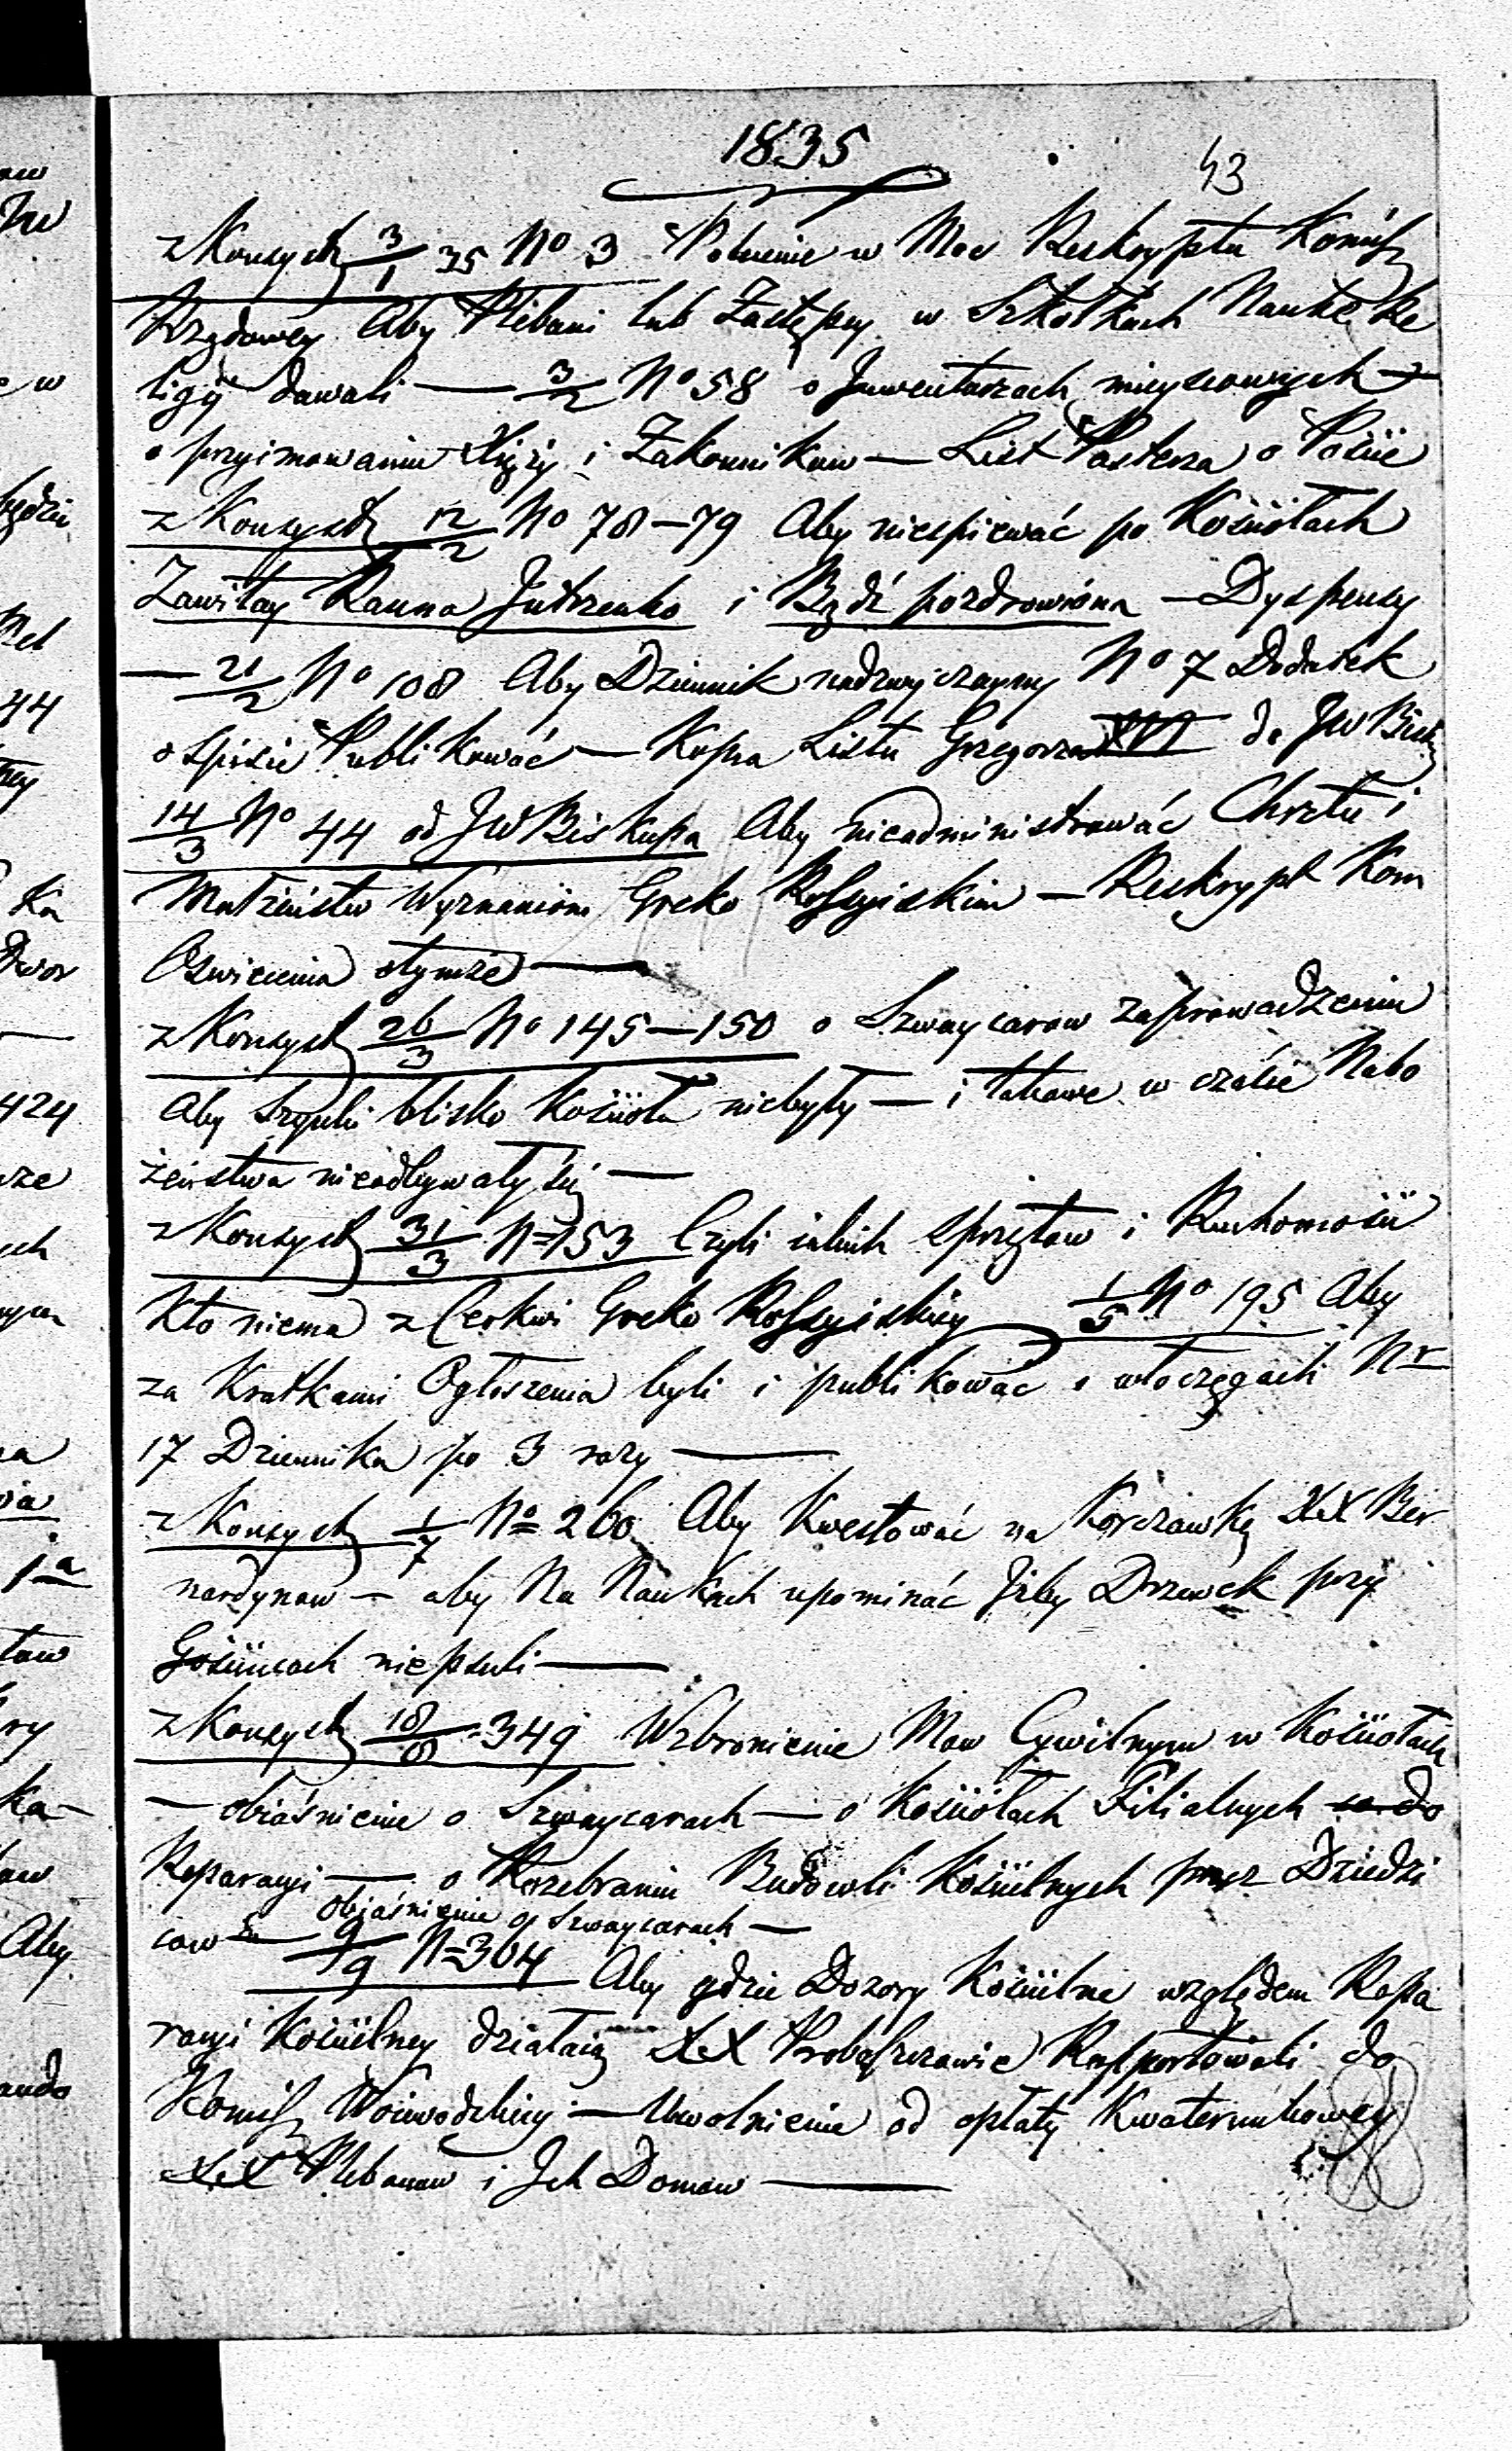 1835
43
z Konsyst 3/1 35 No 3 Polecenie w Moc Reskryptu Komiss
Rządowey Aby Plebani lub Zastępcy w Szkołkach Naukę Re
ligij dawali — 3/2 No 58 o Jnwentarzach mieyscowych —
o przyimowaniu Xięży i Zakonnikow — List Pasterza o Poście
z Konsyst 12/2 No 78—79 Aby niespiewać po Kościołach
Zawitay Ranna Jutrzenko i Bądź pozdrowiona — Dyspensy
— 21/2 No 108 Aby Dziennik nadzwyczayny No 7 Dodatek
o spisie Publikować — Kopia Listu Grzegorza XVI do JW Bisk
14/3 No 44 od JW Biskupa Aby nieadministrować Chrztu i
Małżeństw Wyznaniom Greko Rossyiskim — Reskrypt Kom
Oswiecenia otymze —
z Konsyst 26/3 No 145—150 o Szwaycarow zaprowadzeniu
Aby Szynki blisko Kościoła niebyły — i takowe w czasie Nabo
żeństwa nieodbywały się —
z Konsyst 31/3 N=153 Czyli iakich sprzętow i Ruchomości
Kto niema z Cerkwi Greko Rossyiskiey 1/5 No 195 Aby
za Kratkami Ogłoszenia byli i publikować o włoczęgach Nr
17 Dziennika po 3 razy —
z Konsyst 1/7 No 260 Aby Kwestować na Korczawkę XX Ber
nardynow — aby Na Naukach upominać Jżby Drzewek przy
Gościńcach niepsuli —
z Konsyst 18/8 =349 Wzbronienie Mow Cywilnym w Kościołach
— obiaśnienie o Szwaycarach — o Kościołach Filialnych co do
Reparacyi — o Rozebraniu Budowli Kościelnych przez Dziedzi
objaśnienie o Szwaycarach —
cow — 9/9 N=304 Aby gdzie Dozory Kościelne względem Repa
racyi Kościelney działaią XX Proboszczowie Rapportowali do
Komiss Woiewodzkiey — Uwolnienie od opłaty Kwaterunkowey
XX Plebanow i Jch Domow —